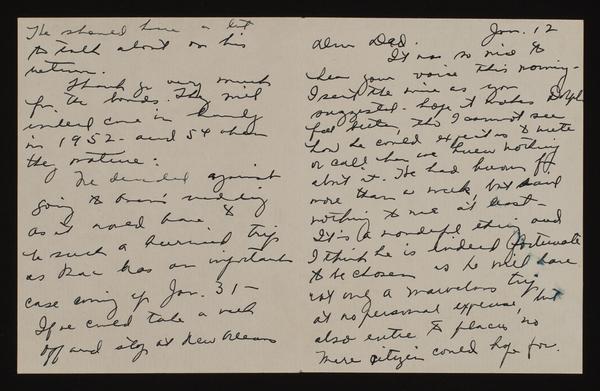 Jan. 12
Dear Dad,
It was so nice to
hear your voice this morning -
I sent the wire as you
suggested - hope it makes Dolph
feel better, tho I cannot see
how he could expect us to write
or call when we knew nothing
about it. He had known it
more than a week, but said
nothing to me at least -
It's a wonderful thing and
I think he is indeed fortunate
to be chosen as he will have
not only a marvelous trip
at no personal expense, but
also entre to places no
mere citizen could hope for.
He should have a lot
to talk about on his
return.
Thank you very much
for the bonds. They will
indeed come in handy
in 1952 - and 54 when
they mature.
We decided against
going to wedding
as it would have to
be such a hurried trip
as Mac has an important
case coming up Jan. 31 -
If we could take a week
off and stop at New Orleans